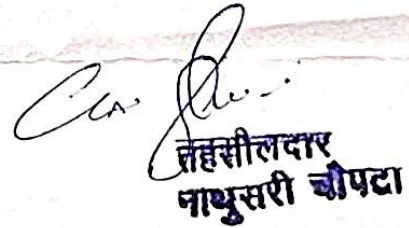 तहसीलदार
नाथुसरी चौपटा